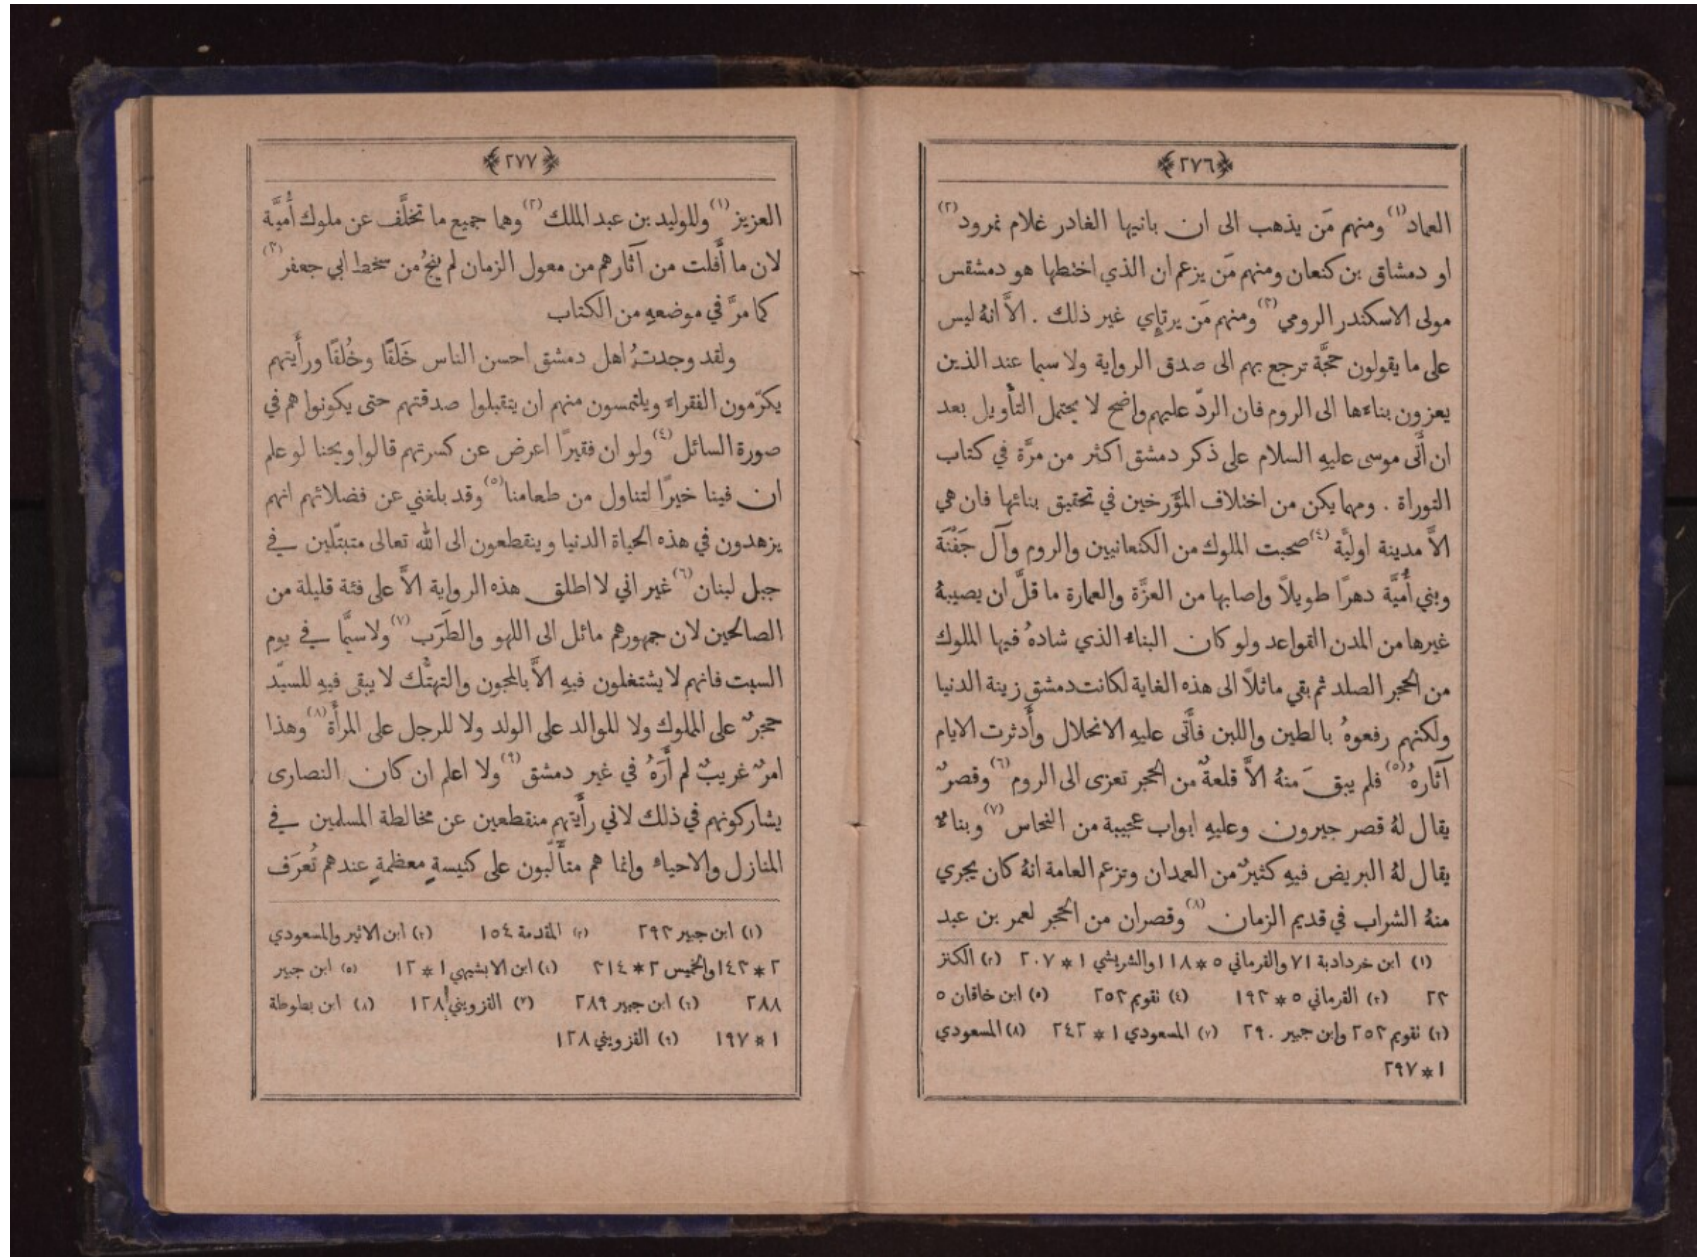 ﴿٢٧٦﴾
العماد(١) ومنهم مَن يذهب الى ان بانيها الغادر غلام نمرود(٢)
او دمشاق بن كنعان ومنهم مَن يزعم ان الذي اختطها هو دمشقس
مولى الاسكندر الرومي(٣) ومنهم مَن يرتإي غير ذلك . الاَّ انهُ ليس
على ما يقولون حجَّة ترجع بهم الى صدق الرواية ولا سيما عند الذين
يعزون بناءَها الى الروم فان الردّ عليهم واضح لا يحتمل التأويل بعد
ان أَتى موسى عليهِ السلام على ذكر دمشق اكثر من مرَّة في كتاب
التوراة . ومهما يكن من اختلاف المؤَرخين في تحقيق بنائها فان هي
الاَّ مدينة اوليَّة(٤) صحبت الملوك من الكنعانيين والروم وآل جَفْنَة
وبني أُميَّة دهرًا طويلاً واصابها من العزَّة والعمارة ما قلَّ ان يصيبهُ
غيرها من المدن القواعد ولو كان البناء الذي شادهُ فيها الملوك
من الحجر الصلد ثم بقي ماثلاً الى هذه الغاية لكانت دمشق زينة الدنيا
ولكنهم رفعوهُ بالطين واللبن فأَتى عليهِ الانحلال وأَدثرت الايام
آثارهُ(٥) فلم يبقَ منهُ الاَّ قلعةٌ من الحجر تعزى الى الروم(٦) وقصرٌ
يقال لهُ قصر جيرون وعليهِ ابواب عجيبة من النحاس(٧) وبناءٌ
يقال لهُ البريض فيهِ كثيرٌ من العمدان وتزعم العامة انهُ كان يجري
منهُ الشراب في قديم الزمان(٨) وقصران من الحجر لعمر بن عبد
(١) ابن خردادبة ٧١ والقرماني ٥*١١٨ والشريشي ١*٢٠٧ (٢) الكنز
٢٣ (٣) القرماني ٥*١٩٣ (٤) تقويم ٢٥٣ (٥) ابن خاقان ٥
(٦) تقويم ٢٥٣ وابن جبير ٢٩٠ (٧) المسعودي ١*٢٤٣ (٨) المسعودي
١*٢٩٧
﴿٢٧٧﴾
العزيز(١) وللوليد بن عبد الملك(٢) وهما جميع ما تخلَّف عن ملوك أُميَّة
لان ما أَفلت من آثارهم من معول الزمان لم ينجُ من سخط ابي جعفر(٣)
كما مرَّ في موضعهِ من الكتاب
ولقد وجدتُ اهل دمشق احسن الناس خَلقًا وخُلقًا ورأَيتهم
يكرّمون الفقراءَ ويلتمسون منهم ان يتقبلوا صدقتهم حتى يكونوا هم في
صورة السائل(٤) ولو ان فقيرًا اعرض عن كسرتهم قالوا ويحنا لو علم
ان فينا خيرًا لتناول من طعامنا(٥) وقد بلغني عن فضلائهم انهم
يزهدون في هذه الحياة الدنيا وينقطعون الى الله تعالى متبتّلين في
جبل لبنان(٦) غير اني لا اطلق هذه الرواية الاَّ على فئة قليلة من
الصالحين لان جمهورهم مائل الى اللهو والطَرَب(٧) ولاسيَّما في يوم
السبت فانهم لا يشتغلون فيهِ الاَّ بالمجون والتهتُّك لا يبقى فيهِ للسيّد
حجرٌ على المملوك ولا للوالد على الولد ولا للرجل على المرأَة(٨) وهذا
امرٌ غريبٌ لم أَرَهُ في غير دمشق(٩) ولا اعلم ان كان النصارى
يشاركونهم في ذلك لاني رأَيتهم منقطعين عن مخالطة المسلمين في
المنازل والاحياء وانما هم متأَلّبون على كنيسةٍ معظمةٍ عندهم تُعرَف
(١) ابن جبير ٢٩٣ (٢) المقدمة ١٥٤ (٣) ابن الاثير والمسعودي
٢*١٤٣ والخميس ٢*٣١٤ (٤) ابن الابشيهي ١*١٣ (٥) ابن جبير
٢٨٨ (٦) ابن جبير ٢٨٩ (٧) القزويني ١٢٨ (٨) ابن بطوطة
١*١٩٧ (٩) القزويني ١٢٨